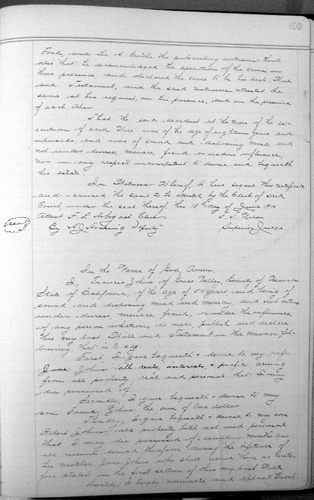 409
Ford, and Geo. A. Smith the subscribing witnesses thereto
also that he acknowledged the execution of the same in
their presence, and declared the same to be his last Will
and Testament, and the said witnesses attested the
same at his request, in his presence, and in the presence
of each other.
That the said decedent at the time of the ex-
ecution of said Will was of the age of eighteen years and
upwards, and was of sound and disposing mind, and
not under duress, menace, fraud, or undue influence,
nor in any respect incompetent to devise and bequeath
his estate.
In Witness Whereof, I have signed this certificate
and caused the same to be attested by the Clerk of said
Court under the seal thereof the 18 day of June
Attest F. L. Arbogast Clerk
By Deputy Superior Judge
In the Name of God Amen.
I, Johns, of Grass Valley, County of Nevada
State of California, of the age of years and being of
sound and disposing mind and memory, and not acting
under duress, menace, fraud, or under the influence
of any person whatever, do make, publish and declare
this my last Will and Testament in the manner fol-
lowing that is to say
First I give bequeath & devise to my wife
Jane Johns all rents, interests & profits arising
from all property real and personal that I may
die possessed of.
Secondly, I give bequeath & devise to my
son Johns the sum of One dollar
Thirdly, I give bequeath & devise to my son
Robert Johns, all property both real and personal
that I may die possessed of, excepting
all revenue derived therefrom during the lifetime of
his mother Jane Johns who shall receive them as before
stated in the first section of this my last Will
Lastly, I hereby nominate and appoint